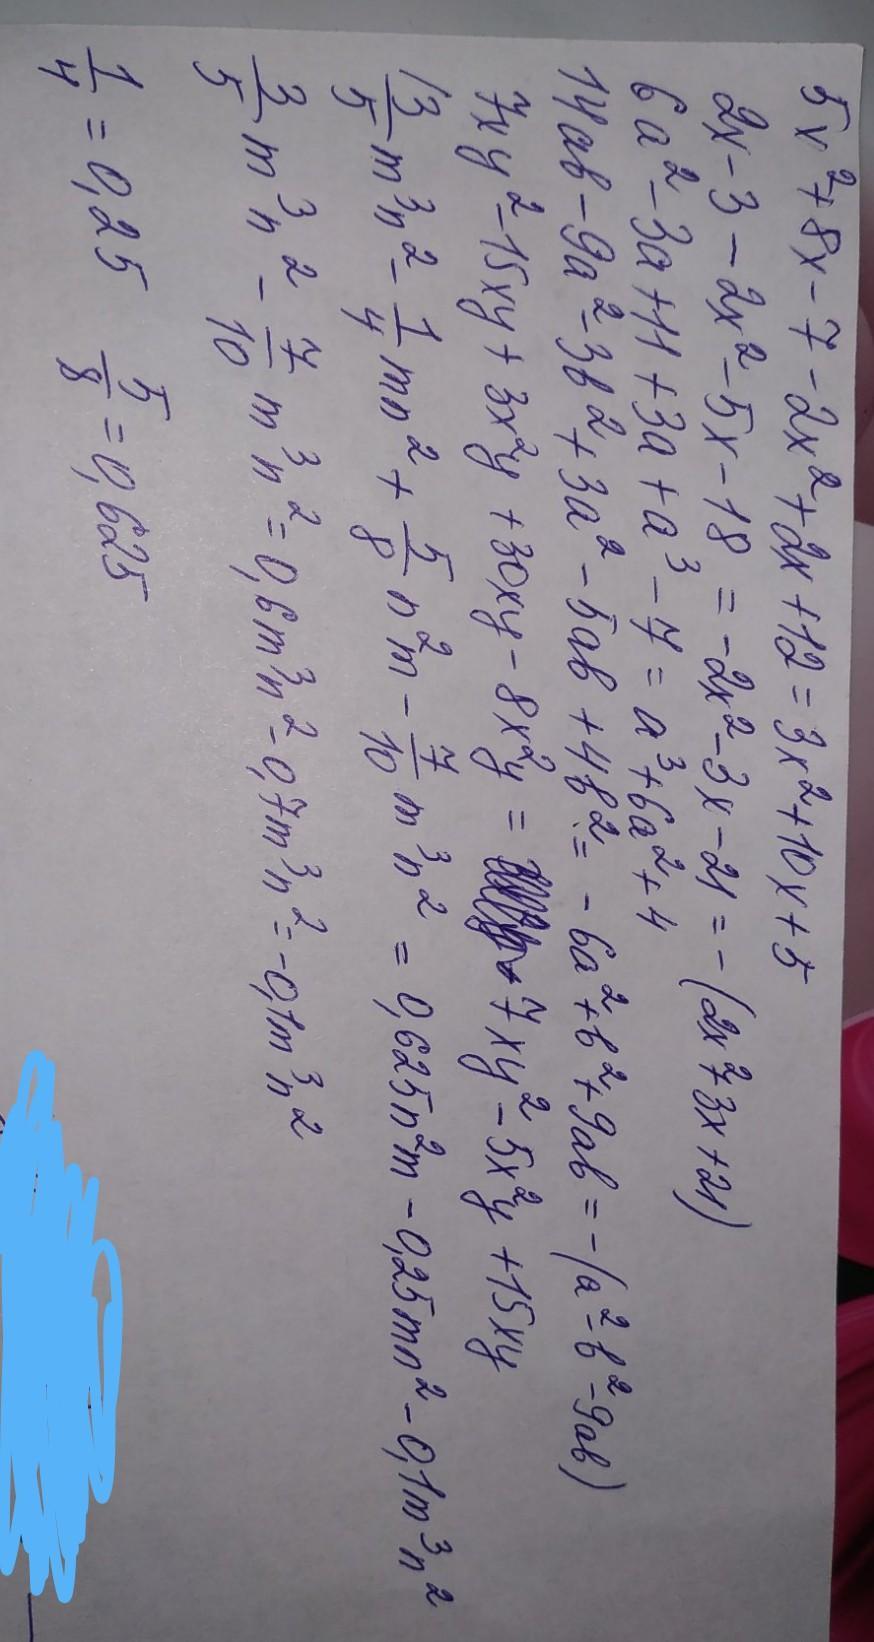 5x²+8x-7-2x²+2x+12=3x²+10x+5
2x-3-2x²-5x-18=-2x²-3x-21=-(2x²+3x+21)
6a²-3a+11+3a+a³-7=a³+6a²+4
14ab-9a²-3b²+3a²-5ab+4b²=-6a²+b²+9ab=-(a²-b²-9ab)
7xy²-15xy+3x²y+30xy-8x²y=7xy²-5x²y+15xy
3/5m³n²-1/4mn²+5/8n²m-7/10m³n²=0,625n²m-0,25mn²-0,1m³n²
3/5m³n²-7/10m³n²=0,6m³n²-0,7m³n²=-0,1m³n²
1/4=0,25 5/8=0,625